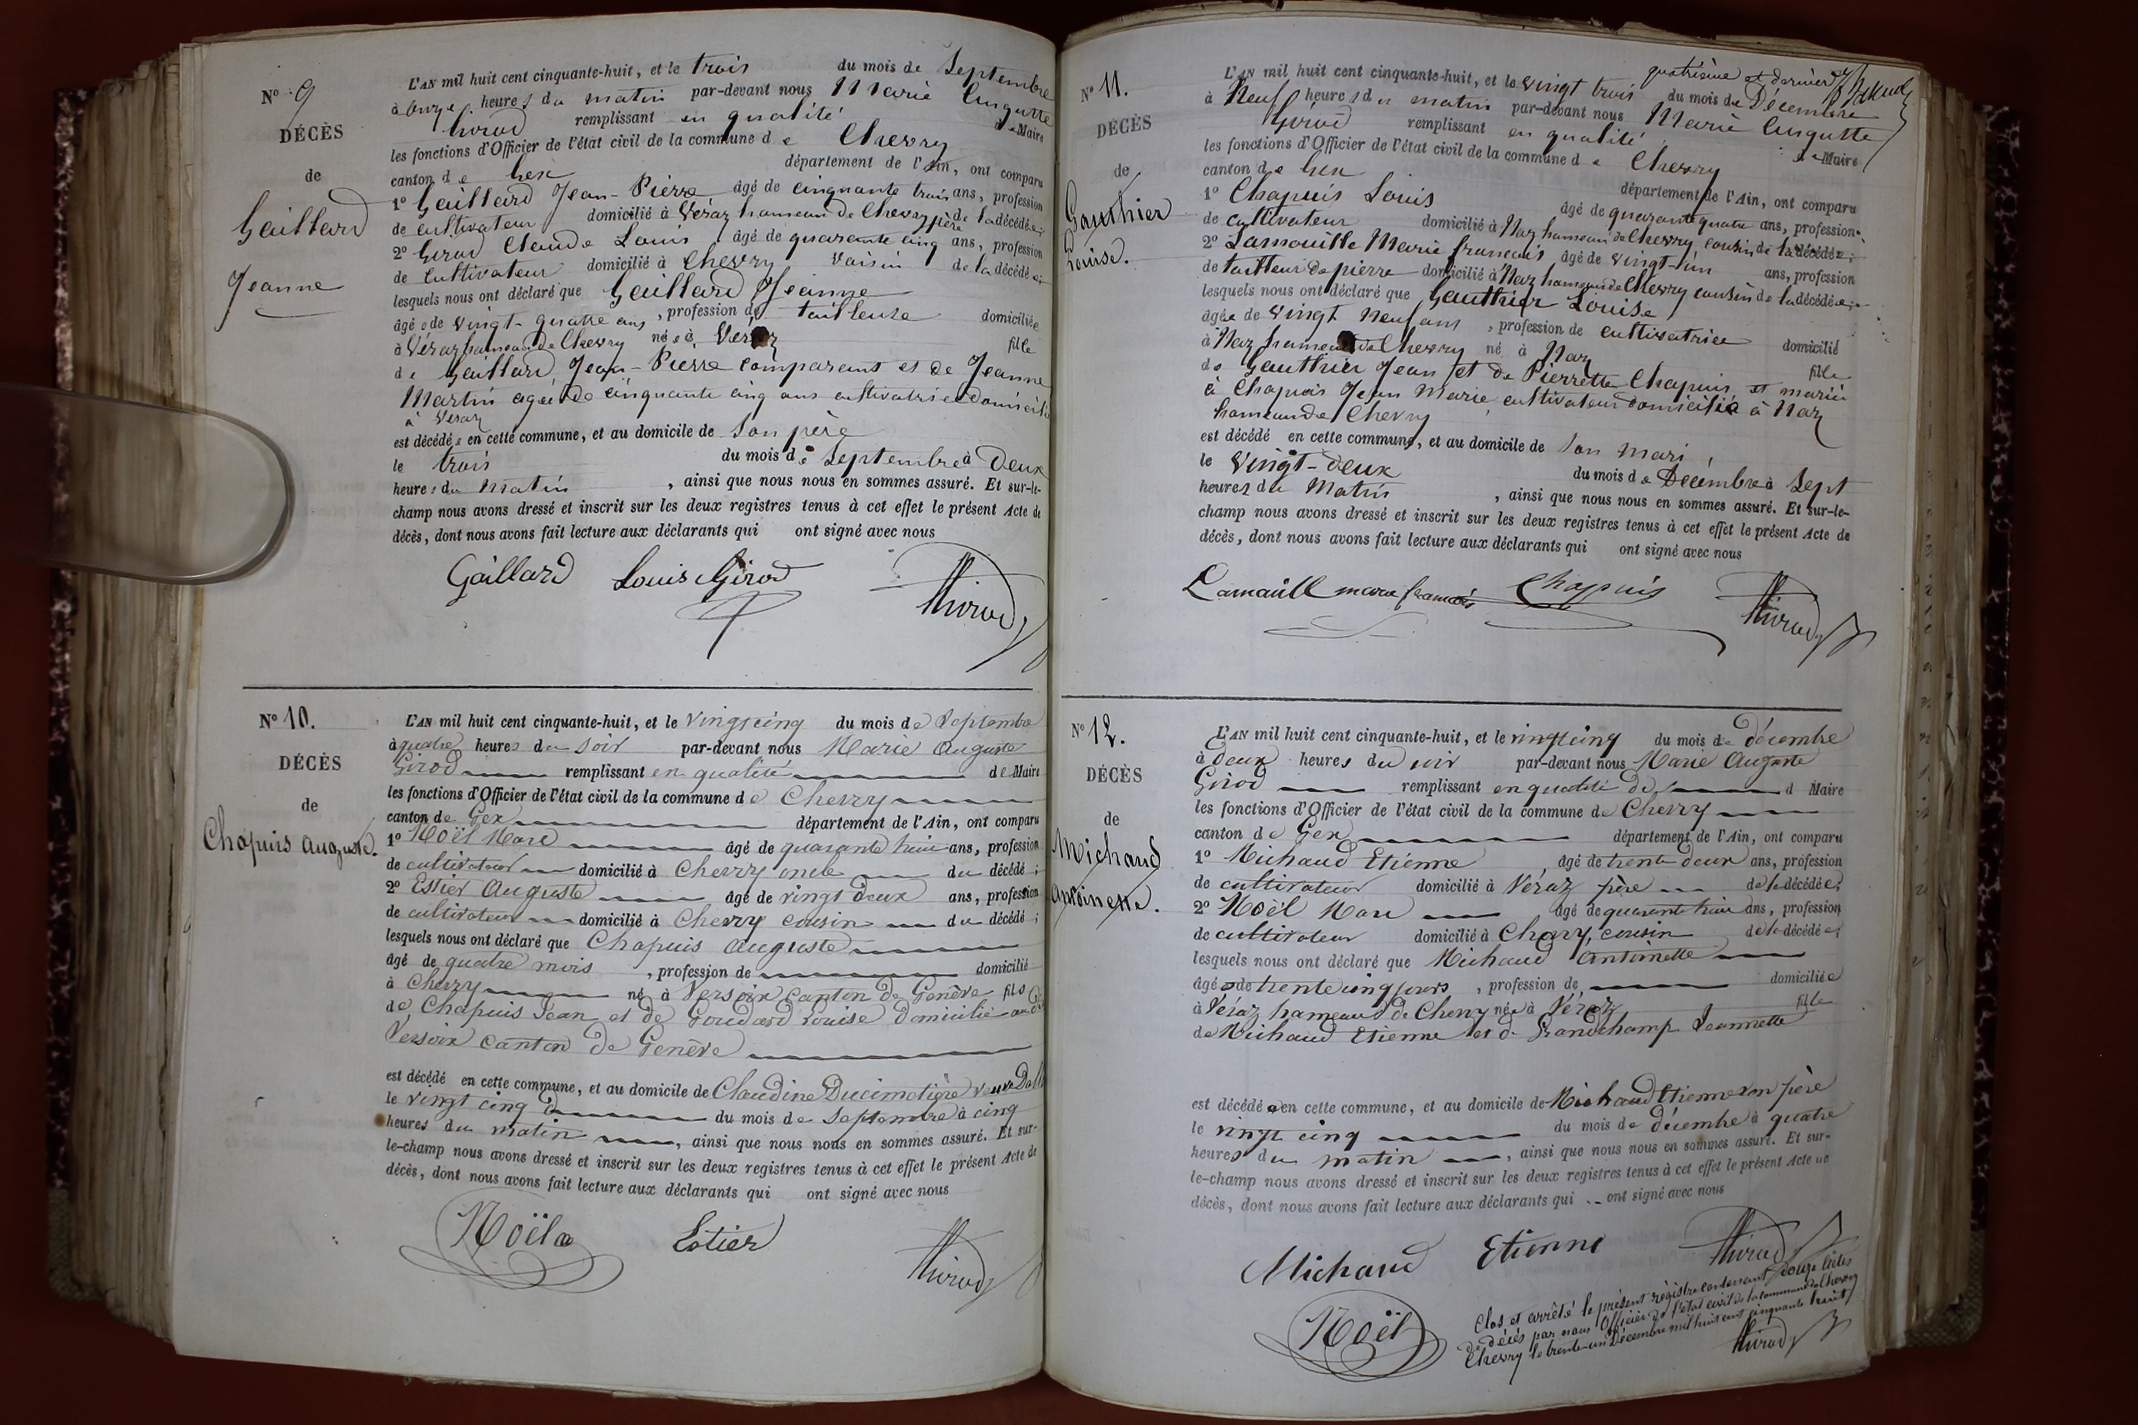 N° 9
DÉCÈS
de
Gaillard
Jeanne
L'AN mil huit cent cinquante-huit, et le trois du mois de Septembre
à onze heures du matin par-devant nous Marie Auguste
Girod remplissant en qualité de Maire
les fonctions d'Officier de l'état civil de la commune de Chevry
canton de Gex département de l'Ain, ont comparu
1° Gaillard Jean-Pierre âgé de cinquante trois ans, profession
de cultivateur domicilié à Véraz hameau de Chevry père de la décédée;
2° Girod Claude Louis âgé de quarante cinq ans, profession
de cultivateur domicilié à Chevry voisin de la décédée;
lesquels nous ont déclaré que Gaillard Jeanne
âgée de vingt-quatre ans, profession de tailleuse domiciliée
à Véraz hameau de Chevry née à Véraz fille
de Gaillard Jean-Pierre comparant et de Jeanne
Martin agée de cinquante cinq ans cultivatrice domicilié
à Veraz
est décédée en cette commune, et au domicile de son père
le trois du mois de Septembre à Deux
heures du matin, ainsi que nous nous en sommes assuré. Et sur-le-
champ nous avons dressé et inscrit sur les deux registres tenus à cet effet le présent Acte de
décès, dont nous avons fait lecture aux déclarants qui ont signé avec nous
Gaillard Louis Girod Girod
N° 10.
DÉCÈS
de
Chapuis Auguste.
L'AN mil huit cent cinquante-huit, et le vingt cinq du mois de Septembre
à quatre heures du soir par-devant nous Marie Auguste
Girod remplissant en qualité de Maire
les fonctions d'Officier de l'état civil de la commune de Chevry
canton de Gex département de l'Ain, ont comparu
1° Noël Marc âgé de quarante huit ans, profession
de cultivateur domicilié à Chevry oncle du décédé;
2° Estier Auguste âgé de vingt deux ans, profession
de cultivateur domicilié à Chevry cousin du décédé;
lesquels nous ont déclaré que Chapuis Auguste
âgé de quatre mois, profession de domicilié
à Chevry né à Versoix canton de Genève fils
de Chapuis Jean et de Goudard Louise domicilié
Versoix canton de Genève
est décédé en cette commune, et au domicile de Claudine Ducimetière veuve
le vingt cinq du mois de Septembre à cinq
heures du matin, ainsi que nous nous en sommes assuré. Et sur-
le-champ nous avons dressé et inscrit sur les deux registres tenus à cet effet le présent Acte de
décès, dont nous avons fait lecture aux déclarants qui ont signé avec nous
Noël Estier Girod
quatrième et dernier
N° 11.
DÉCÈS
de
Gauthier
Louise.
L'AN mil huit cent cinquante-huit, et le vingt trois du mois de Décembre
à Neuf heures du matin par-devant nous Marie Auguste
Girod remplissant en qualité de Maire
les fonctions d'Officier de l'état civil de la commune de Chevry
canton de Gex département de l'Ain, ont comparu
1° Chapuis Louis âgé de quarante quatre ans, profession
de cultivateur domicilié à Naz hameau de Chevry cousin de la décédée;
2° Lamouille Marie françois âgé de vingt-un ans, profession
de tailleur de pierre domicilié à Naz hameau de Chevry cousin de la décédée;
lesquels nous ont déclaré que Gauthier Louise
âgée de vingt neuf ans, profession de cultivatrice domicilié
à Naz hameau de Chevry né à Naz fille
de Gauthier Jean et de Pierrette Chapuis et mariée
à Chapuis Jean Marie cultivateur domicilié à Naz
hameau de Chevry
est décédé en cette commune, et au domicile de son mari
le vingt-deux du mois de Décembre à sept
heures du Matin, ainsi que nous nous en sommes assuré. Et sur-le-
champ nous avons dressé et inscrit sur les deux registres tenus à cet effet le présent Acte de
décès, dont nous avons fait lecture aux déclarants qui ont signé avec nous
Lamouill marie francois Chapuis Girod
N° 12.
DÉCÈS
de
Michaud
Antoinette.
L'AN mil huit cent cinquante-huit, et le vingt cinq du mois de décembre
à Deux heures du soir par-devant nous Marie Auguste
Girod remplissant en qualité de d Maire
les fonctions d'Officier de l'état civil de la commune de Chevry
canton de Gex département de l'Ain, ont comparu
1° Michaud Etienne âgé de trente deux ans, profession
de cultivateur domicilié à Véraz père de la décédée;
2° Noël Marc âgé de quarante huit ans, profession
de cultivateur domicilié à Chevry, cousin de la décédée;
lesquels nous ont déclaré que Michaud Antoinette
âgée de trente cinq jours, profession de domiciliée
à Véraz hameau de Chevry née à Véraz fille
de Michaud Etienne et de Grandchamp Jeannette
est décédée en cette commune, et au domicile de Michaud Etienne son père
le vingt cinq du mois de décembre à quatre
heures du matin, ainsi que nous nous en sommes assuré. Et sur-
le-champ nous avons dressé et inscrit sur les deux registres tenus à cet effet le présent Acte de
décès, dont nous avons fait lecture aux déclarants qui ont signé avec nous
Michaud Etienne Girod
Noël
Clos et arrêté le présent registre contenant douze actes
de décès par nous Officier de l'état civil de la commune de Chevry
Chevry le trente-un Décembre mil huit cent cinquante huit
Girod